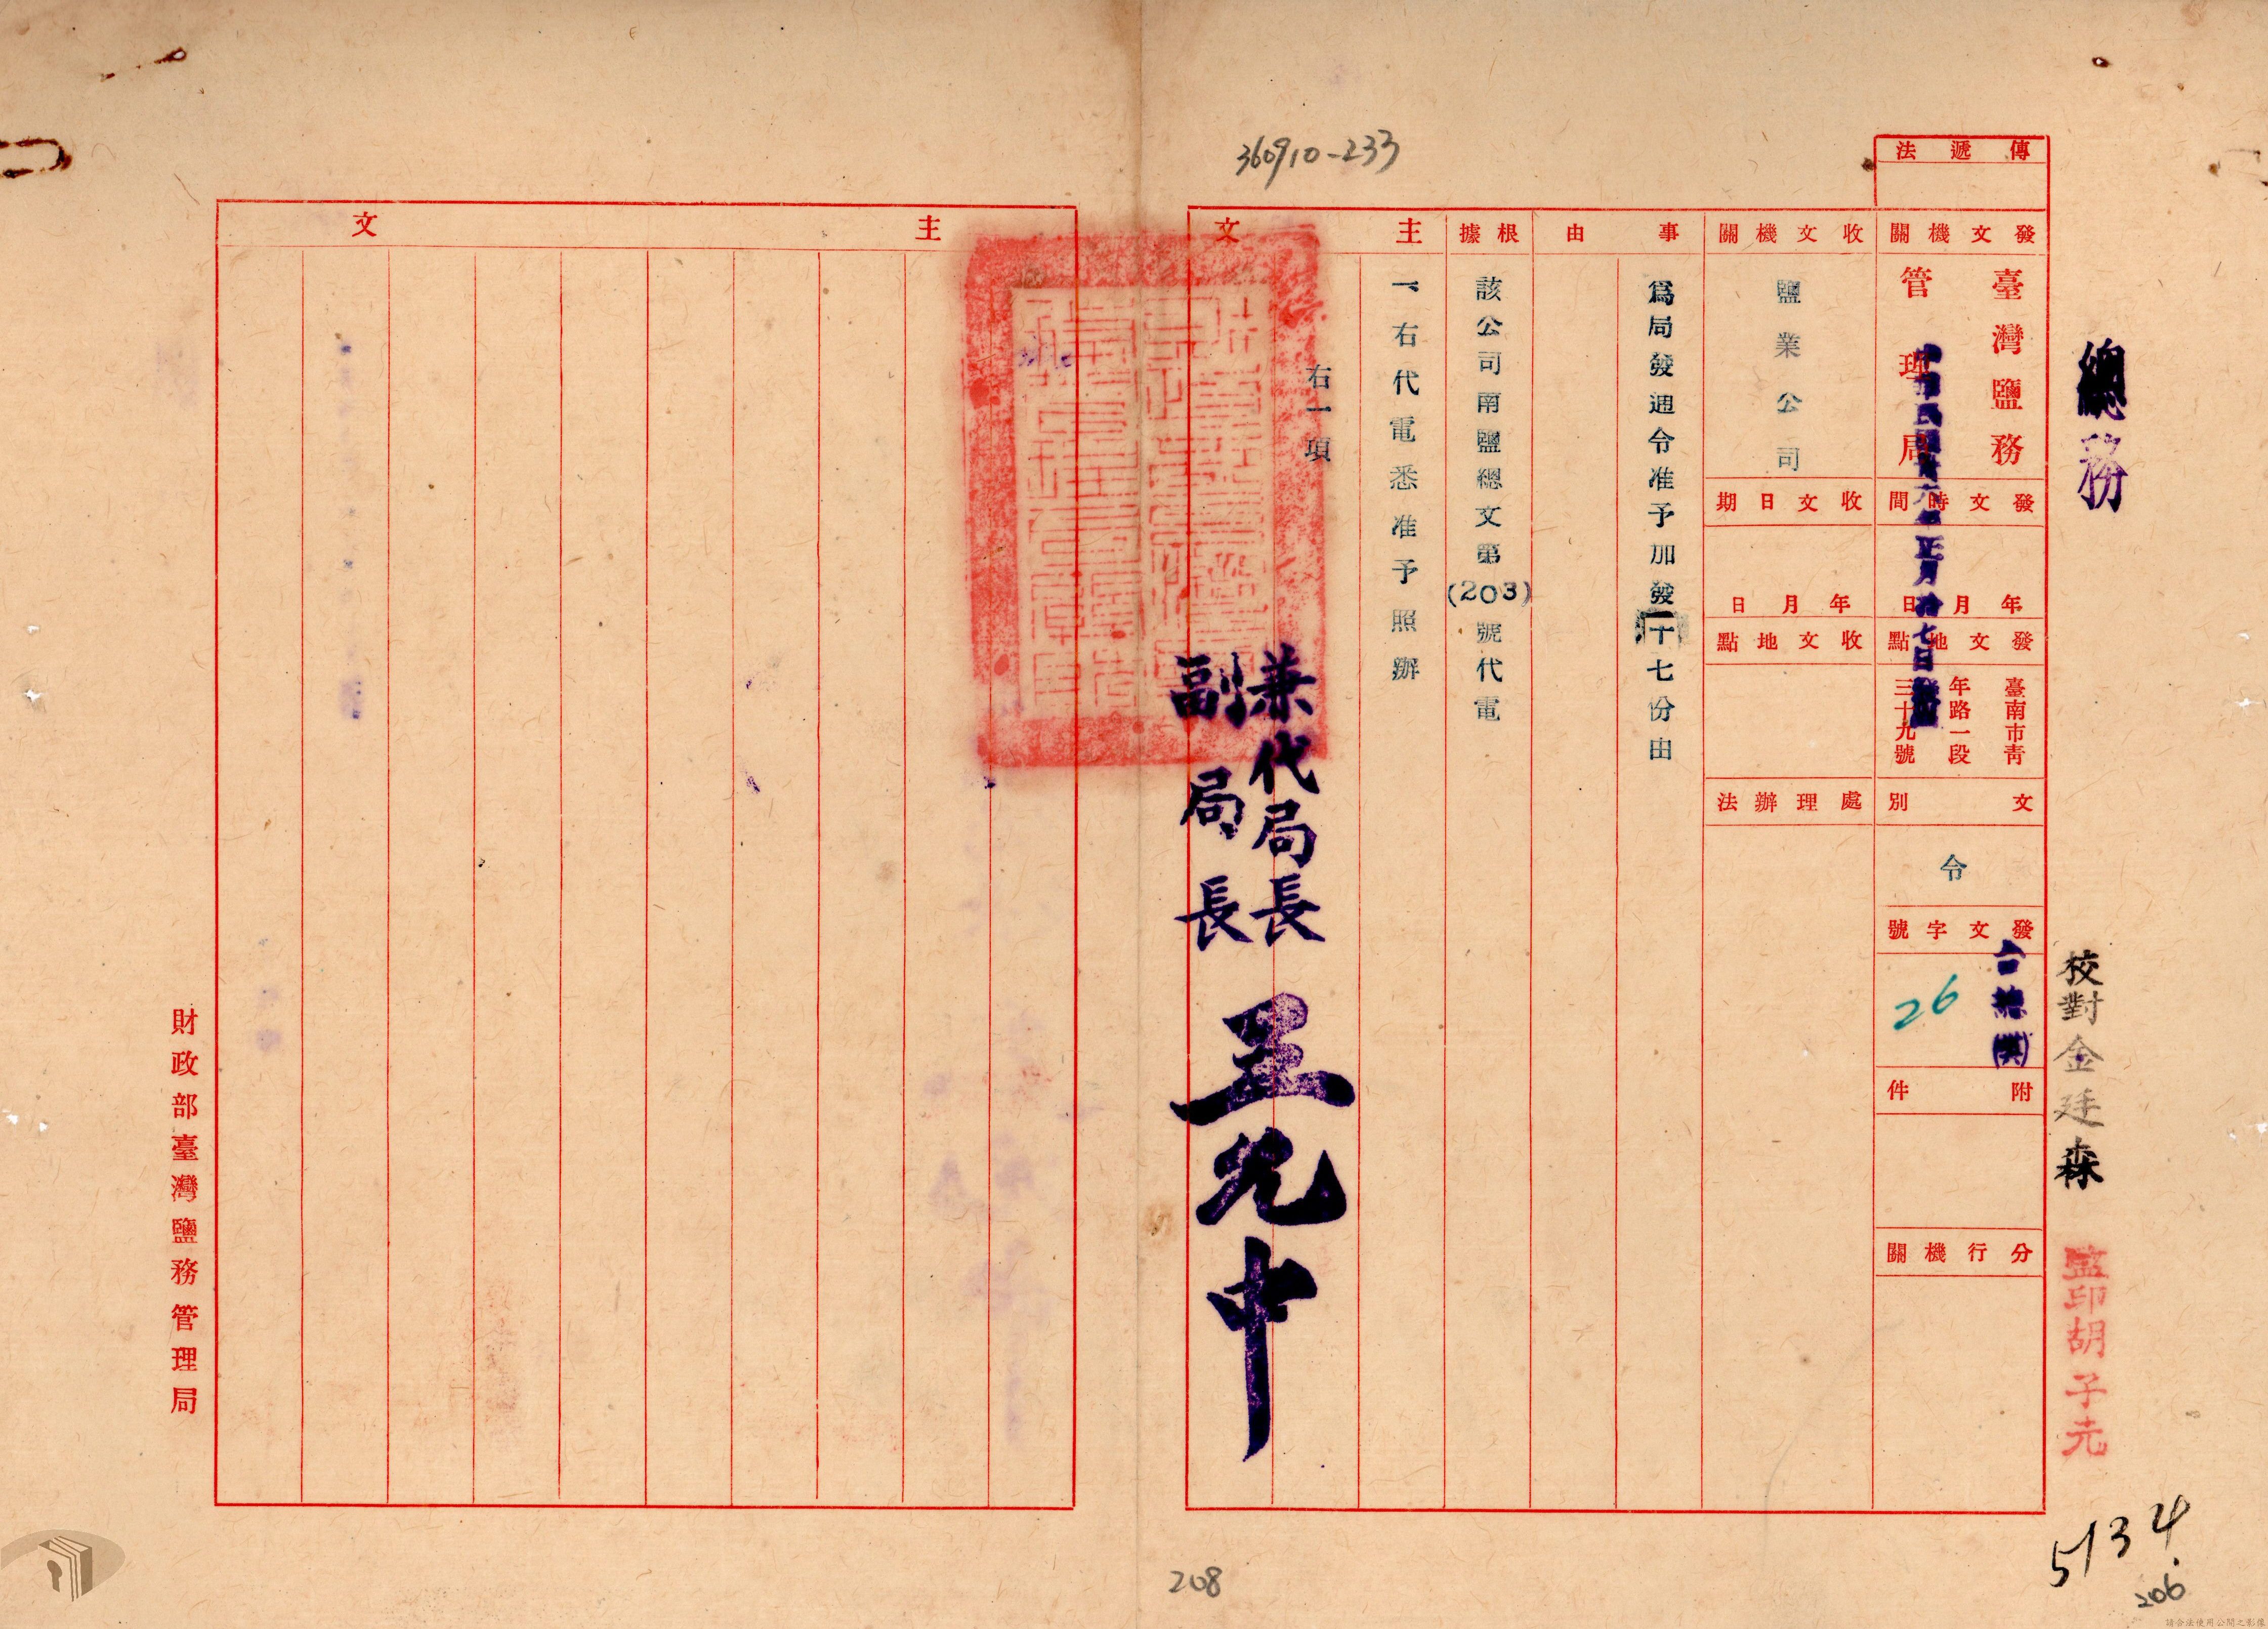 360910-233
總務
校對金廷森
監印胡子元
5134
206
傳遞法
發文機關
臺灣鹽務
管理局
發文時間
中華民國卅六年正月拾七日
年月日
發文地點
臺南市靑
年路一段
三十九號
文別
令
發文字號
台總(興)
26
附件
分行機關
收文機關
鹽業公司
收文日期
年月日
收文地點
處理辦法
事由
爲局發通令准予加發十七份由
根據
該公司南鹽總文第(203)號代電
主文
一、右代電悉准予照辦
右一項
兼代局長
副局長
王允中
主文
財政部臺灣鹽務管理局
208
請合法使用公開之影像